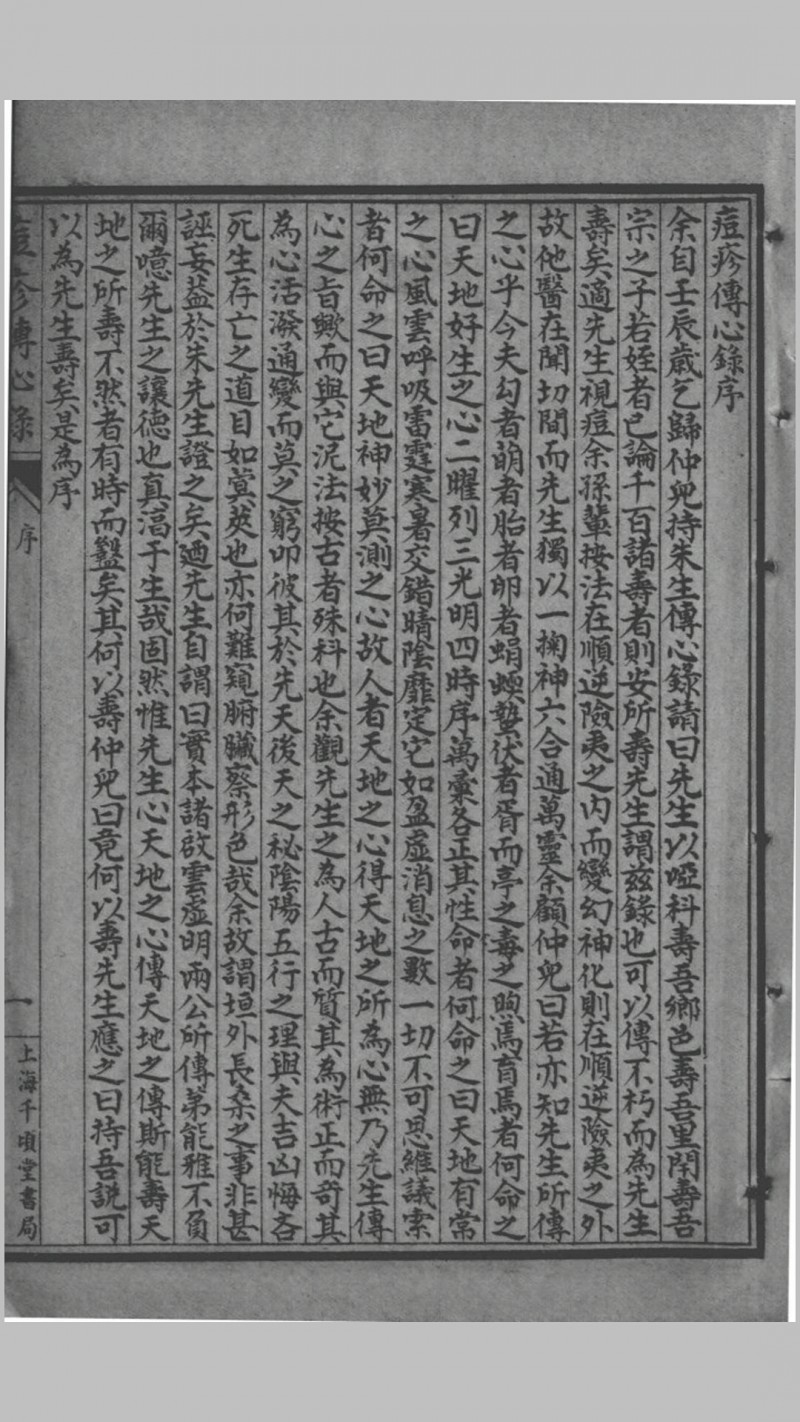 痘疹傳心錄序
余自壬辰歲乞歸仲兒持朱生傳心錄請曰先生以啞科壽吾鄉邑壽吾里閈壽吾
宗之子若姪者已論千百諸壽者則安所壽先生謂兹錄也可以傳不朽而為先生
壽矣適先生視痘余孫輩按法在順逆險夷之內而變幻神化則在順逆險夷之外
故他醫在聞切間而先生獨以一掬神六合通萬靈余顧仲兒曰若亦知先生所傳
之心乎今夫勾者萌者胎者卵者蜎蝡蟄伏者胥而亭之毒之煦焉育焉者何命之
曰天地好生之心二曜列三光明四時序萬彙各正其性命者何命之曰天地有常
之心風雲呼吸雷霆寒暑交錯晴陰靡定它如盈虛消息之數一切不可思維議索
者何命之曰天地神妙莫測之心故人者天地之心得天地之所為心無乃先生傳
心之旨歟而與它泥法按古者殊科也余觀先生之為人古而質其為術正而奇其
為心活潑通變而莫之窮叩彼其於先天後天之秘陰陽五行之理與夫吉凶悔吝
死生存亡之道目如蓂莢也亦何難窺腑臟察形色哉余故謂垣外長桑之事非甚
誣妄益於朱先生證之矣廼先生自謂曰實本諸啟雲虛明兩公所傳苐能雅不負
爾噫先生之讓德也真淈于生哉固然惟先生心天地之心傳天地之傳斯能壽天
地之所壽不然者有時而盭矣其何以壽仲兒曰竟何以壽先生應之曰持吾說可
以為先生壽矣是為序
痘疹傳心錄
序
一
上海千頃堂書局